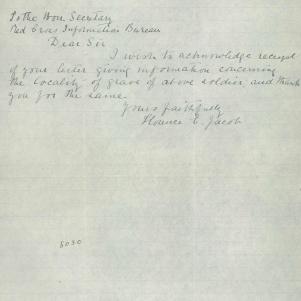 To the Hon. Secretary
Red Cross Information Bureau
Dear Sir
I wish to acknowledge receipt
of your letter giving information concerning
the locality of grave of above soldier and thank
you for the same.
Yours faithfully
Florence E. Jacob
5030